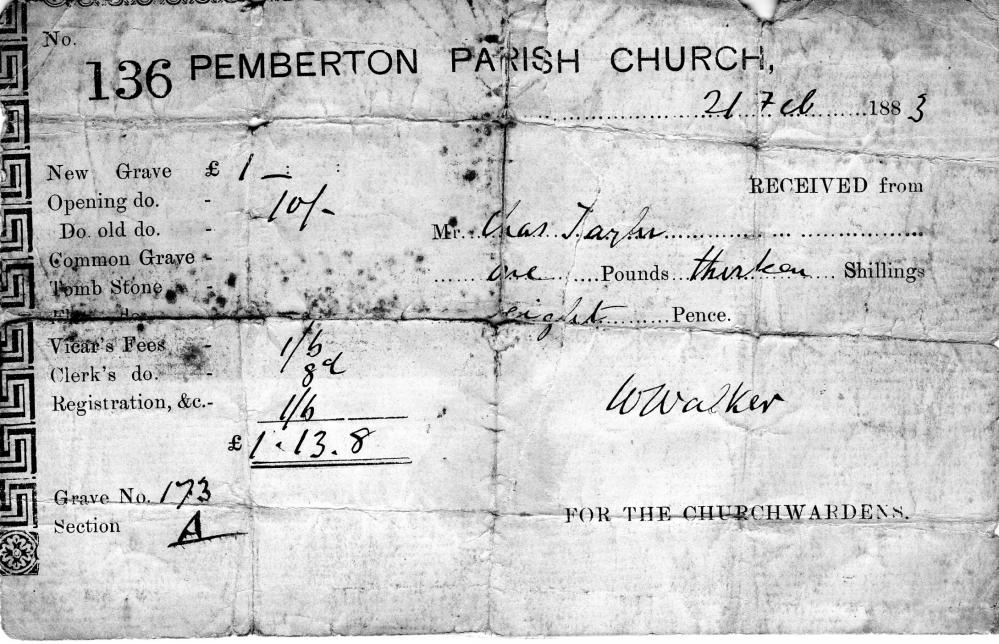 No.
136 PEMBERTON PARISH CHURCH,
21 Feb 1883
New Grave £ 1 – :
Opening do. - 10/-
Do. old do. -
Common Grave -
Tomb Stone -
Vicar's Fees - 1/6
Clerk's do. - 8d
Registration, &c.- 1/6
£ 1.13.8
Grave No. 173
Section A
RECEIVED from
Mr. Chas. Taylor
one Pounds thirteen Shillings
eight Pence.
W Walker
FOR THE CHURCHWARDENS.